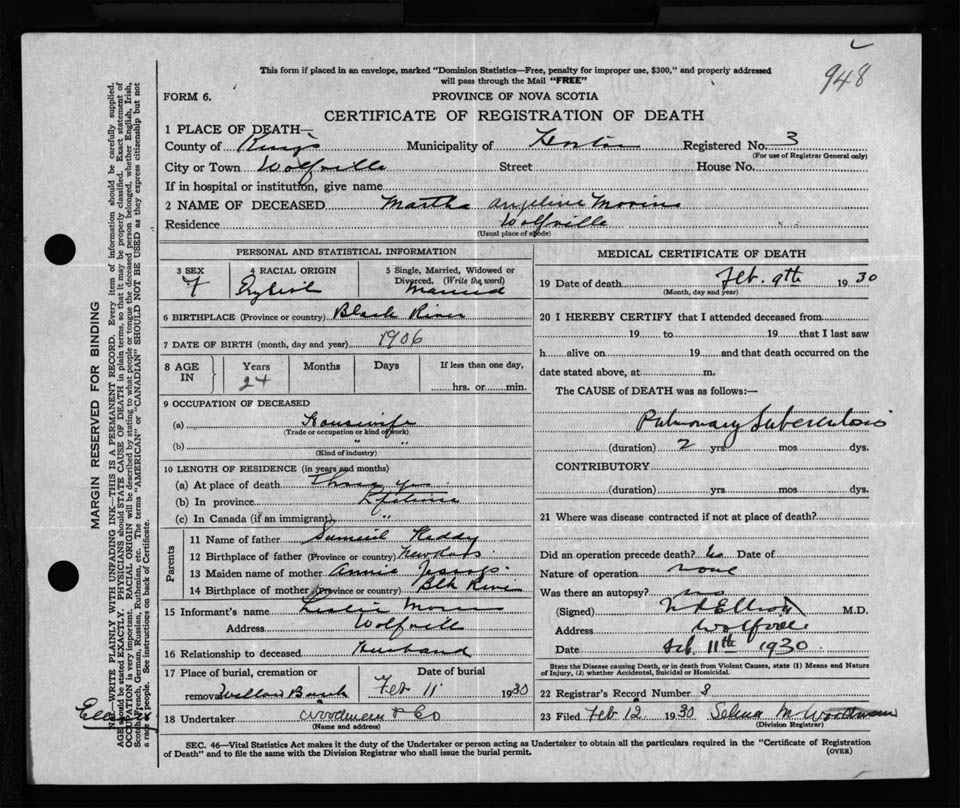 This form if placed in an envelope, marked "Dominion Statistics—Free, penalty for improper use, $300," and properly addressed
will pass through the Mail "FREE"
948
FORM 6.
PROVINCE OF NOVA SCOTIA
CERTIFICATE OF REGISTRATION OF DEATH
1 PLACE OF DEATH—
County of King's Municipality of Registered No. 3
(For use of Registrar General only)
City or Town Wolfville Street House No.
If in hospital or institution, give name
2 NAME OF DECEASED Martha Angeline
Residence Wolfville
(Usual place of abode)
PERSONAL AND STATISTICAL INFORMATION
3 SEX
4 RACIAL ORIGIN
5 Single, Married, Widowed or
Divorced. (Write the word)
F English Married
6 BIRTHPLACE (Province or country) Black River
7 DATE OF BIRTH (month, day and year) 1906
8 AGE IN
Years Months Days If less than one day,
24
hrs. or min.
9 OCCUPATION OF DECEASED
(a) Housewife
(Trade or occupation or kind of work)
(b) " "
(Kind of industry)
10 LENGTH OF RESIDENCE (in years and months)
(a) At place of death Three yrs
(b) In province Lifetime
(c) In Canada (if an immigrant) "
Parents
11 Name of father Samuel
12 Birthplace of father (Province or country)
13 Maiden name of mother Annie
14 Birthplace of mother (Province or country) Blk River
15 Informant's name Leslie
Address Wolfville
16 Relationship to deceased Husband
17 Place of burial, cremation or
removal Willow Bank
Date of burial
Feb 11 1930
18 Undertaker Woodman & Co
(Name and address)
MEDICAL CERTIFICATE OF DEATH
19 Date of death Feb. 9th 1930
(Month, day and year)
20 I HEREBY CERTIFY that I attended deceased from
19 to 19 that I last saw
h alive on 19 and that death occurred on the
date stated above, at m.
The CAUSE of DEATH was as follows:—
Pulmonary Tuberculosis
(duration) 2 yrs. mos. dys.
CONTRIBUTORY
(duration) yrs. mos. dys.
21 Where was disease contracted if not at place of death?
Did an operation precede death? No Date of
Nature of operation none
Was there an autopsy? no
(Signed) M.D.
Address Wolfville
Date Feb. 11th 1930
State the Disease causing Death, or in death from Violent Causes, state (1) Means and Nature
of Injury, (2) whether Accidental, Suicidal or Homicidal.
22 Registrar's Record Number 8
23 Filed Feb 12 1930 Selina M. Woodman
(Division Registrar)
SEC. 46—Vital Statistics Act makes it the duty of the Undertaker or person acting as Undertaker to obtain all the particulars required in the "Certificate of Registration
of Death" and to file the same with the Division Registrar who shall issue the burial permit.
(OVER)
MARGIN RESERVED FOR BINDING
N.B.—WRITE PLAINLY WITH UNFADING INK—THIS IS A PERMANENT RECORD. Every item of information should be carefully supplied.
AGE should be stated EXACTLY. PHYSICIANS should STATE CAUSE OF DEATH in plain terms, so that it may be properly classified. Exact statement of
OCCUPATION is very important. RACIAL ORIGIN will be described by stating to what people or tongue the deceased person belonged, whether English, Irish,
Scotch, French, German, Russian, Ruthenian, etc. The terms "AMERICAN" or "CANADIAN" SHOULD NOT BE USED as they express citizenship but not
a race or people. See instructions on back of Certificate.